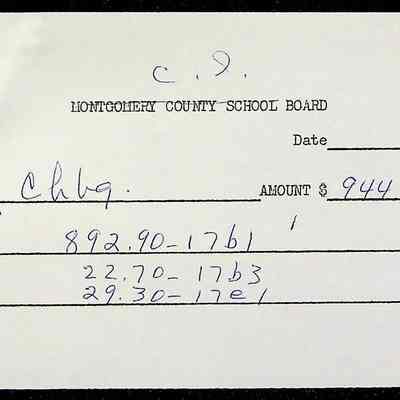 C. I.
MONTGOMERY COUNTY SCHOOL BOARD
Date
Chbg. AMOUNT $ 944
892.90-17b1
22.70-17b3
29.30-17e1